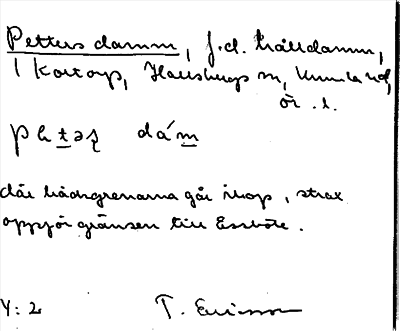 Petters damm, f.d. kvarndamm,
i Kortorp, Hallsbergs sn, Kumla hd,
ör. l.
pætəʂ dám
där bäckgrenarna går ihop, strax
uppför gränsen till Essböle.
Y: 2 T. Ericsson